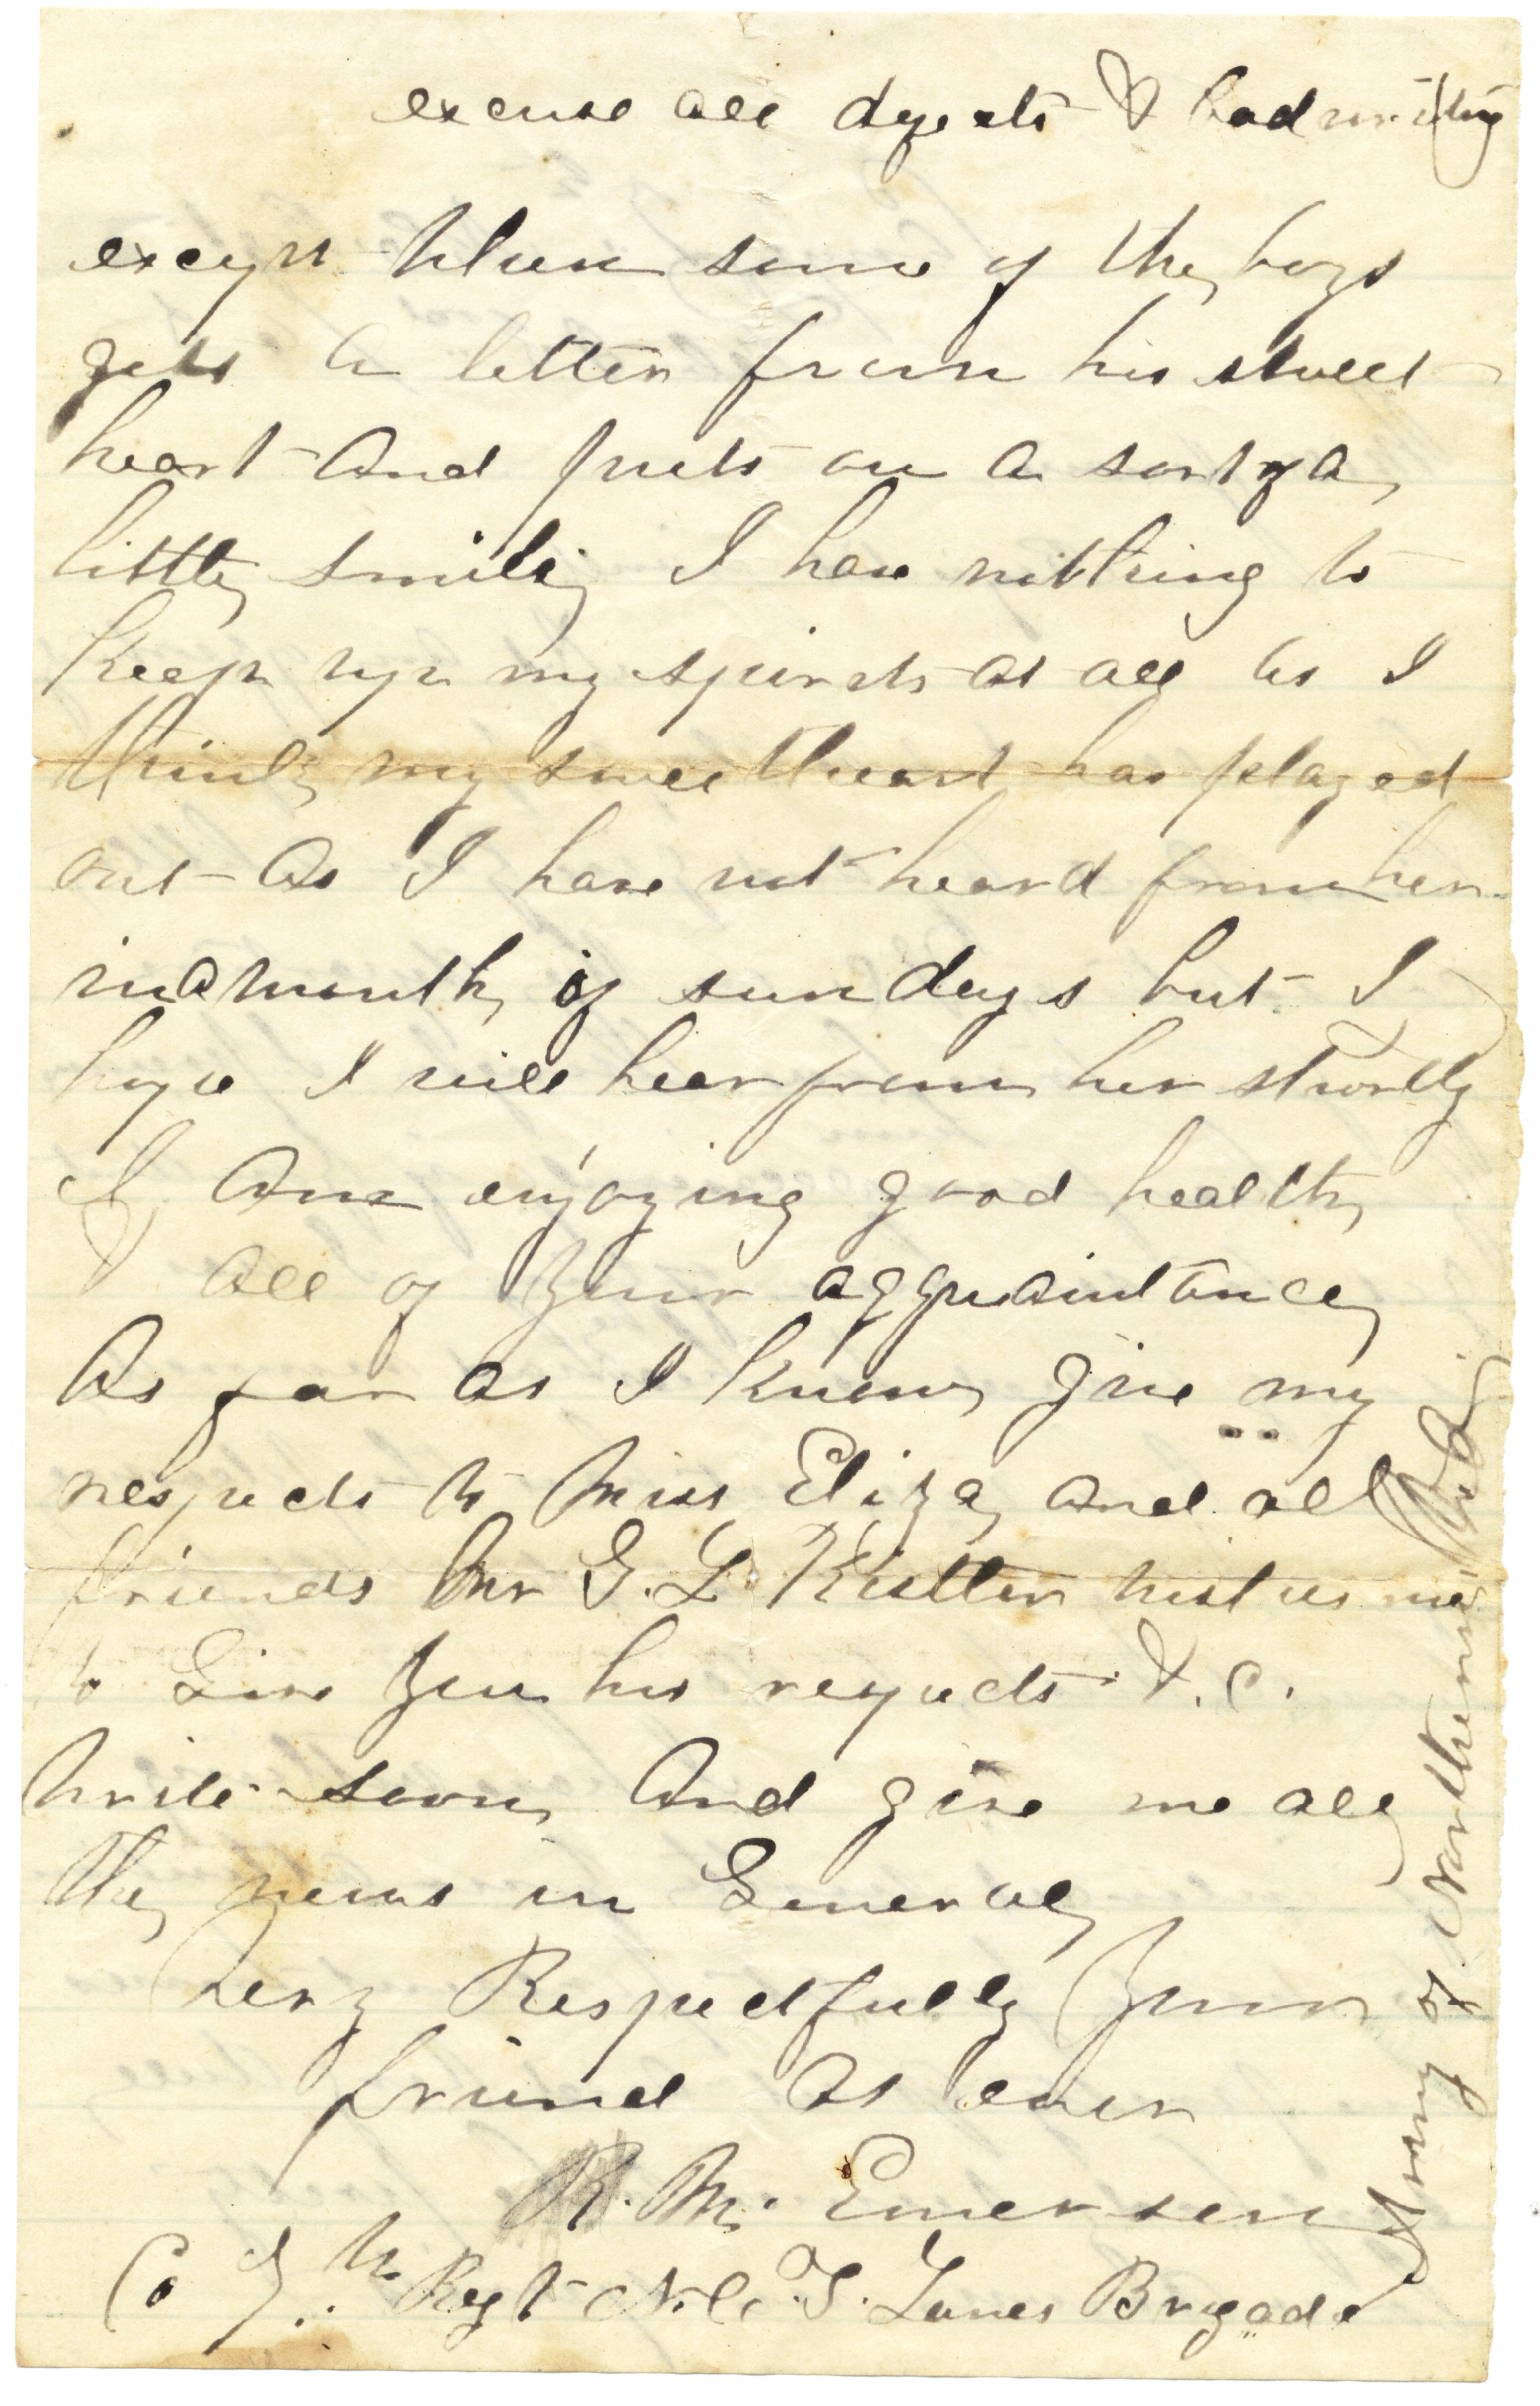 excuse all defects & bad writing
except when some of the boys
gets a letter from his sweet
heart and puts on a sort of a
little smile I have nothing to
Keep up my spirits at all as I
think my sweetheart has played
out as I have not heard from her
in a month of sundays but I
hope I will hear from her shortly
I am enjoying good health
& all of your acquaintance
As far as I know give my
respects to Miss Eliza and all
friends Mr G. L. Kistler wishes me
to Give you his respects &.c.
Write soon And give me all
the news in General
Very Respectfully Your
friend As ever
R. M. Emerson
Co I 7th Regt N.C. T. Lanes Brigade
Army of Northern Va.